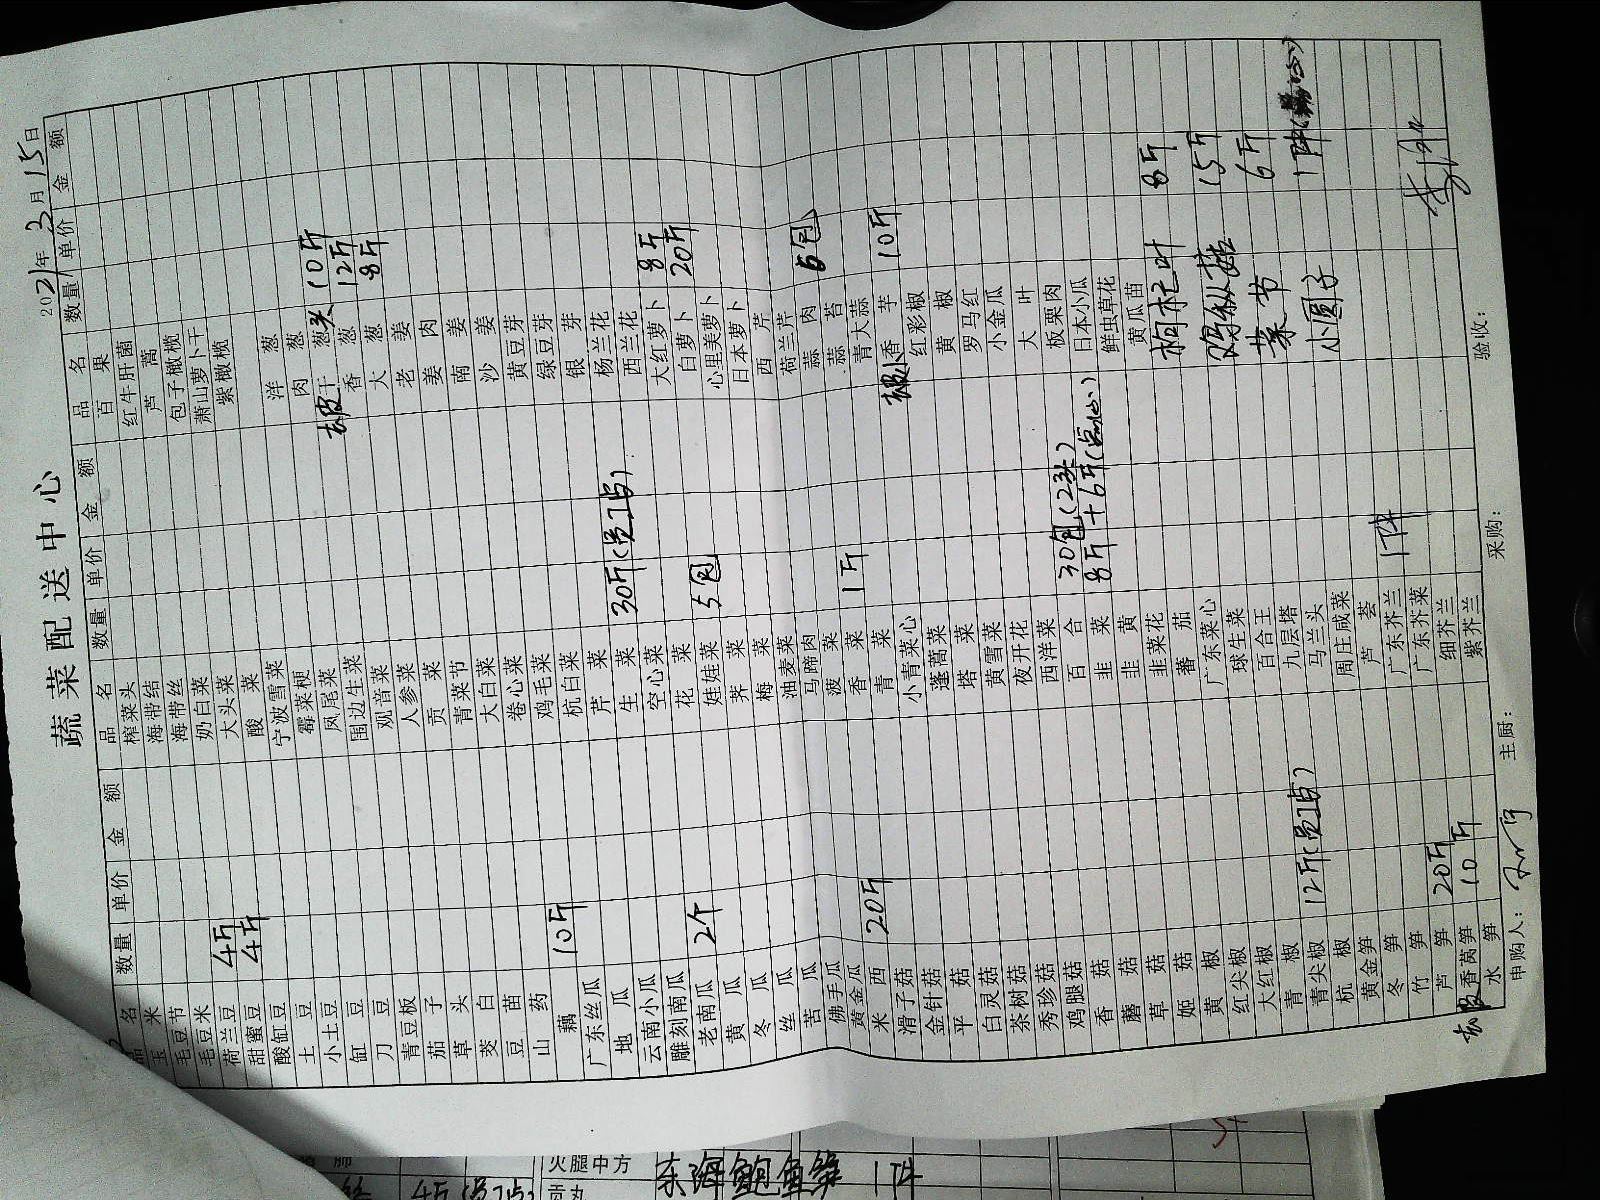 蔬菜配送中心
2021年3月15日
品名 数量 单价 金额 品名 数量 单价 金额 品名 数量 单价 金额
玉米
毛豆节
毛豆米
荷兰豆 4斤
甜蜜豆 4斤
酸缸豆
土豆
小土豆
缸豆
刀豆
青豆板
茄子
草头
茭白
豆苗
山药
藕 10斤
广东丝瓜
地瓜
云南小瓜
雕刻南瓜
老南瓜 2个
黄瓜
冬瓜
丝瓜
苦瓜
佛手瓜
黄金瓜
米西 20斤
滑子菇
金针菇
平菇
白灵菇
茶树菇
秀珍菇
鸡腿菇
香菇
蘑菇
草菇
姬菇
黄椒
红尖椒
大红椒
青椒
青尖椒 12斤(员工点)
杭椒
黄金笋
冬笋
竹笋
芦笋 20斤
去皮香莴笋 10斤
水笋
榨菜头
海带结
海带丝
奶白菜
大头菜
酸菜
宁波雪菜
霉菜梗
凤尾菜
围边生菜
观音菜
人参菜
贡菜
青菜节
大白菜
卷心菜
鸡毛菜
杭白菜
芹菜
生菜 30斤(员工点)
空心菜
花菜
娃娃菜 5包
荠菜
梅菜
油麦菜
马蹄肉
菠菜
香菜 1斤
青菜
小青菜心
蓬蒿菜
塔菜
黄雪菜
夜开花
西洋菜
百合 30包(2头)
韭菜 8斤+6斤(点心)
韭黄
韭菜花
番茄
广东菜心
球生菜
百合王
九层塔
马兰头
周庄咸菜
芦荟
广东芥兰 1件
广东芥菜
细芥兰
紫芥兰
百果
红牛肝菌
芦蒿
包子橄榄
萧山萝卜干
紫橄榄
洋葱
肉葱
去皮干葱头 10斤
香葱 12斤
大葱 8斤
老姜
姜肉
南姜
沙姜
黄豆芽
绿豆芽
银芽
杨兰花
西兰花
大红萝卜 8斤
白萝卜 20斤
心里美萝卜
日本萝卜
西芹
荷兰芹
蒜肉 5包
蒜苔
青大蒜
去皮小香芋 10斤
红彩椒
黄椒
罗马红
小金瓜
大叶
板栗肉
日本小瓜
鲜虫草花
黄瓜苗
枸杞叶 8斤
鸡枞菇 15斤
菜节 6斤
小圆子 1件(点心)
申购人: 主厨: 采购: 验收:
火腿中方
贡丸
东海鲍鱼 1件
4斤(员工点)